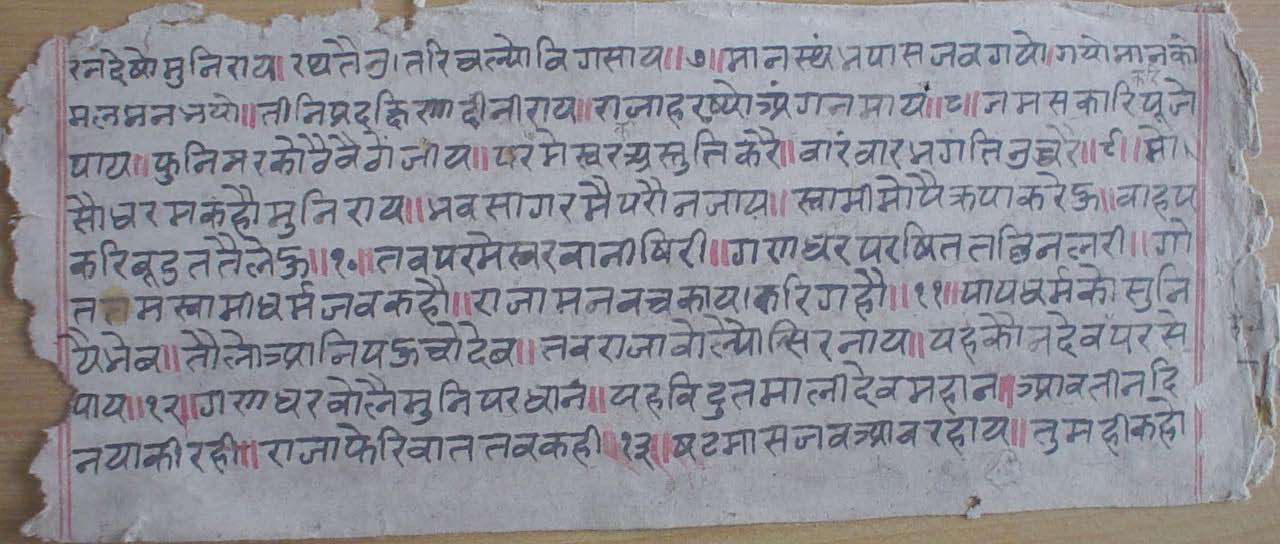 रनदेष्यो मुनिराय॥ रथतै उतरि चल्यो विगसाय॥७॥ मानस्थंभ पास जव गयो। गयो मान को
मल मन भयो॥ तीनि प्रदक्षिणा दीनी राय॥ राजा हरष्यो अंगन माय॥८॥ नमसकार करि पूजे
पाय॥ फुनि नर कोठै वैठौ जाय॥ परमेस्वर अस्तुति करै॥ वारंवार भगति उच्चरै॥९॥ मो
सौ धरम कहौ मुनिराय॥ भवसागर मै परौ न जाय॥ स्वामी मोपै क्रपा करेऊ॥ वाह प
करि वूडत तै लेऊ॥१०॥ तव परमेस्वर वानी षिरी॥ गणधर परषित तछिन लरी॥ गो
तम स्वामी धर्म जव कहौ॥ राजा मन वच काय करि गहौ॥११॥ पाप धर्म को सुनि
यै भेव॥ तौलो आनि पऊचो देव॥ तव राजा वोल्यो सिर नाय॥ यह कौन देव परसे
पाय॥१२॥ गणधर वोलै मुनि परधान॥ यह विदुतमाली देव महान॥ आव तीन दि
न याकी रही॥ राजा फेरि वात तव कही॥१३॥ षट मास जव आव रहाय॥ तुम ही कहो